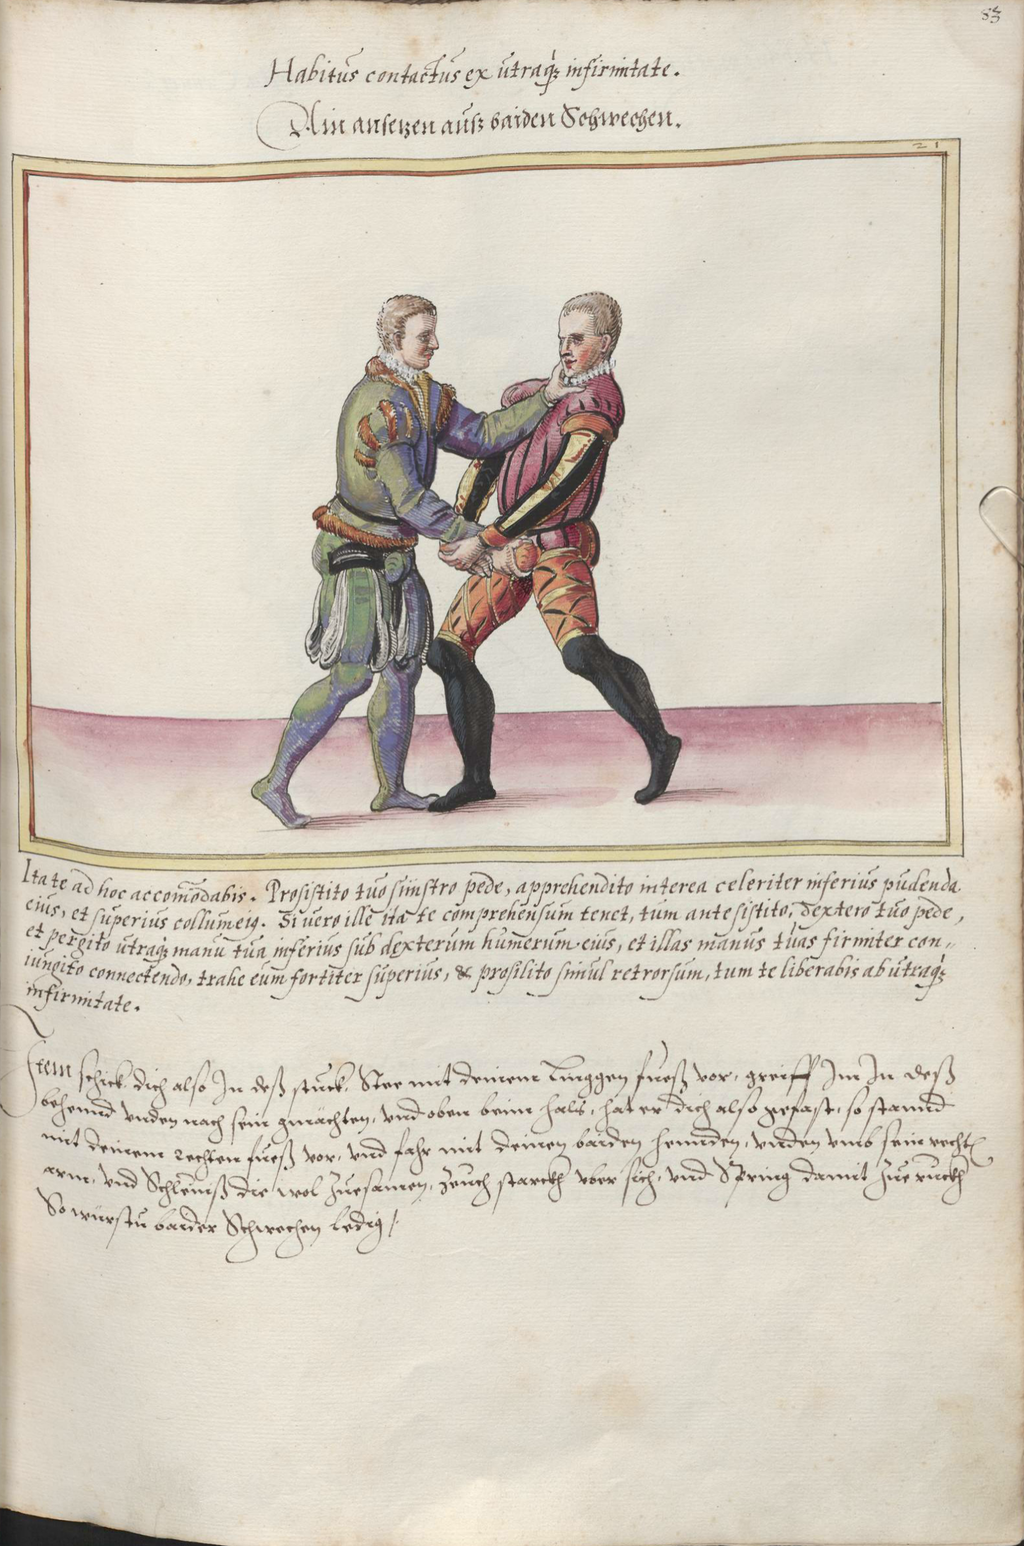 83
Habitus contactus ex utraq̃ infirmitate.
Ain anseҭzen auß baiden Schwechen.
21
Ita te ad hoc accom̃odabis. Prosistito tuo sinistro pede, apprehendito interea celeriter inferius pudenda
eius, et superius collum eiꝰ. Si vero ille ita te comprehensum tenet, tum ante sistito, dextero tuo pede,
et pergito utraq̃ manu tua inferius sub dexterum humerum eius, et illas manus tuas firmiter con„
iungito connectendo, trahe eum fortiter superius, & prosilito simul retrorsum, tum te liberabis ab utraq̃
infirmitate.
Item schick dich also In deß stuck, Stee mit deinem Linggen fueß vor, greiff Im In deß
behennd unden nach sein gmächten, und oben beim hals, hat er dich also gefast, so stannd
mit deinem rechten fueß vor, und fahr mit deinen baiden hennden, unden umb sein recht
arm, und Schleuß die wol Zuesamen, Zeuch starckh uber sich, und Spring damit Zue ruckh
So würstu baider Schwechen ledig /.